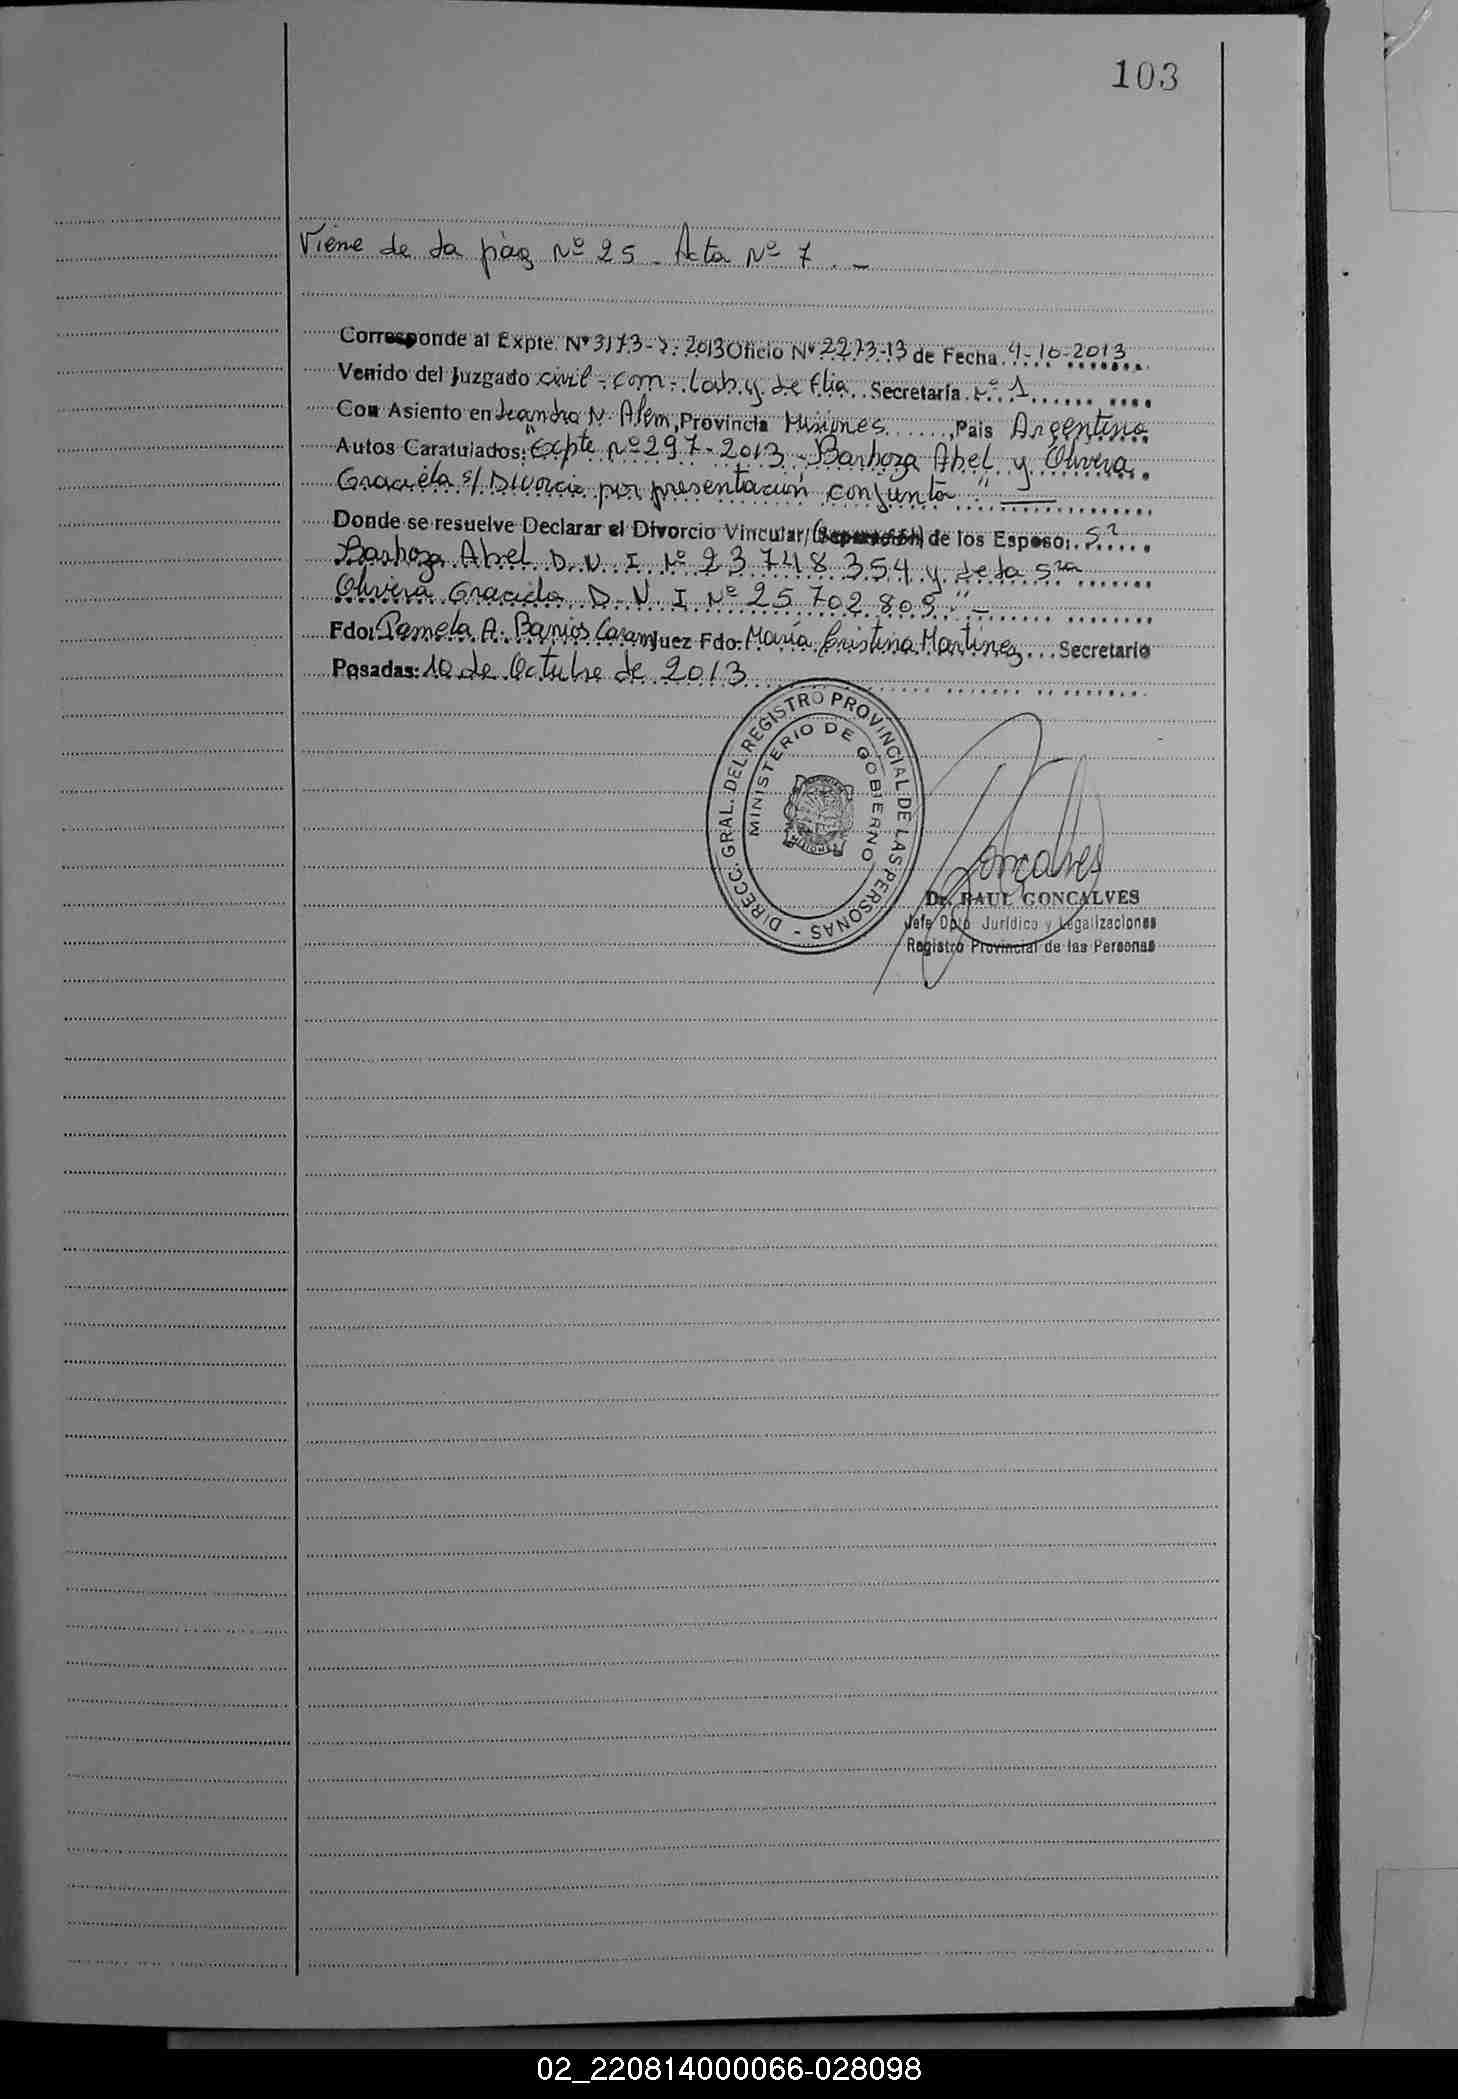 103
Viene de la pág Nº 25 - Acta Nº 7 . -
Corresponde al Expte. Nº 3173-2-2013 Oficio Nº 2273-13 de Fecha 4-10-2013
Venido del Juzgado civil - com - lab y de flia. Secretaría Nº 1
Con Asiento en Leandro N. Alem, Provincia Misiones, Pais Argentina
Autos Caratulados: "Expte Nº 297-2013 - Barboza Abel y Olivera
Graciela s/ Divorcio por presentación conjunta"
Donde se resuelve Declarar el Divorcio Vincular/(Separación) de los Esposo: Sr
Barboza Abel D.N.I. Nº 23 748 354 y de la Sra
Olivera Graciela D.N.I Nº 25 702 809 " -
Fdo: Pamela A. Barrios Juez Fdo: María Cristina Martinez Secretario
Posadas: 10 de Octubre de 2013
DIRECC. GRAL. DEL REGISTRO PROVINCIAL DE LAS PERSONAS -
MINISTERIO DE GOBIERNO
MISIONES
Goncalves
Dr. RAUL GONCALVES
Jefe Dpto Jurídico y Legalizaciones
Registro Provincial de las Personas
02_220814000066-028098